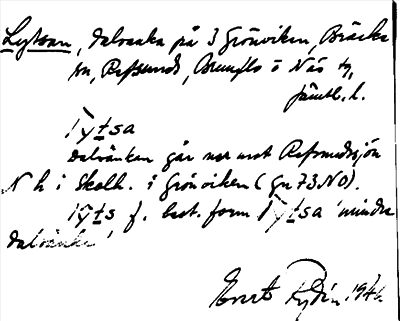 Lytsan, dalsänka på 3 Grönviken, Bräcke
sn, Refsunds, Brunflo o Näs tg,
Jämtl. l.
Tytsa
dalsänken går ner mot Refsundssjön
N h i Skolh. i Grönviken (Gn 73 NO).
Tyts f. best. form Tytsa 'mindre
dalsänka'
Evert Rydin 1946